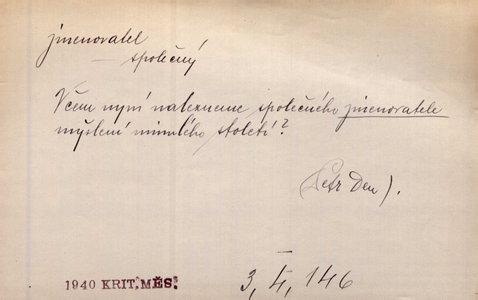 jmenovatel
— společný
V čem nyní nalezneme společného jmenovatele
myšlení minulého století?
(Petr Den).
1940 KRIT. MĚS.
3, 4, 146